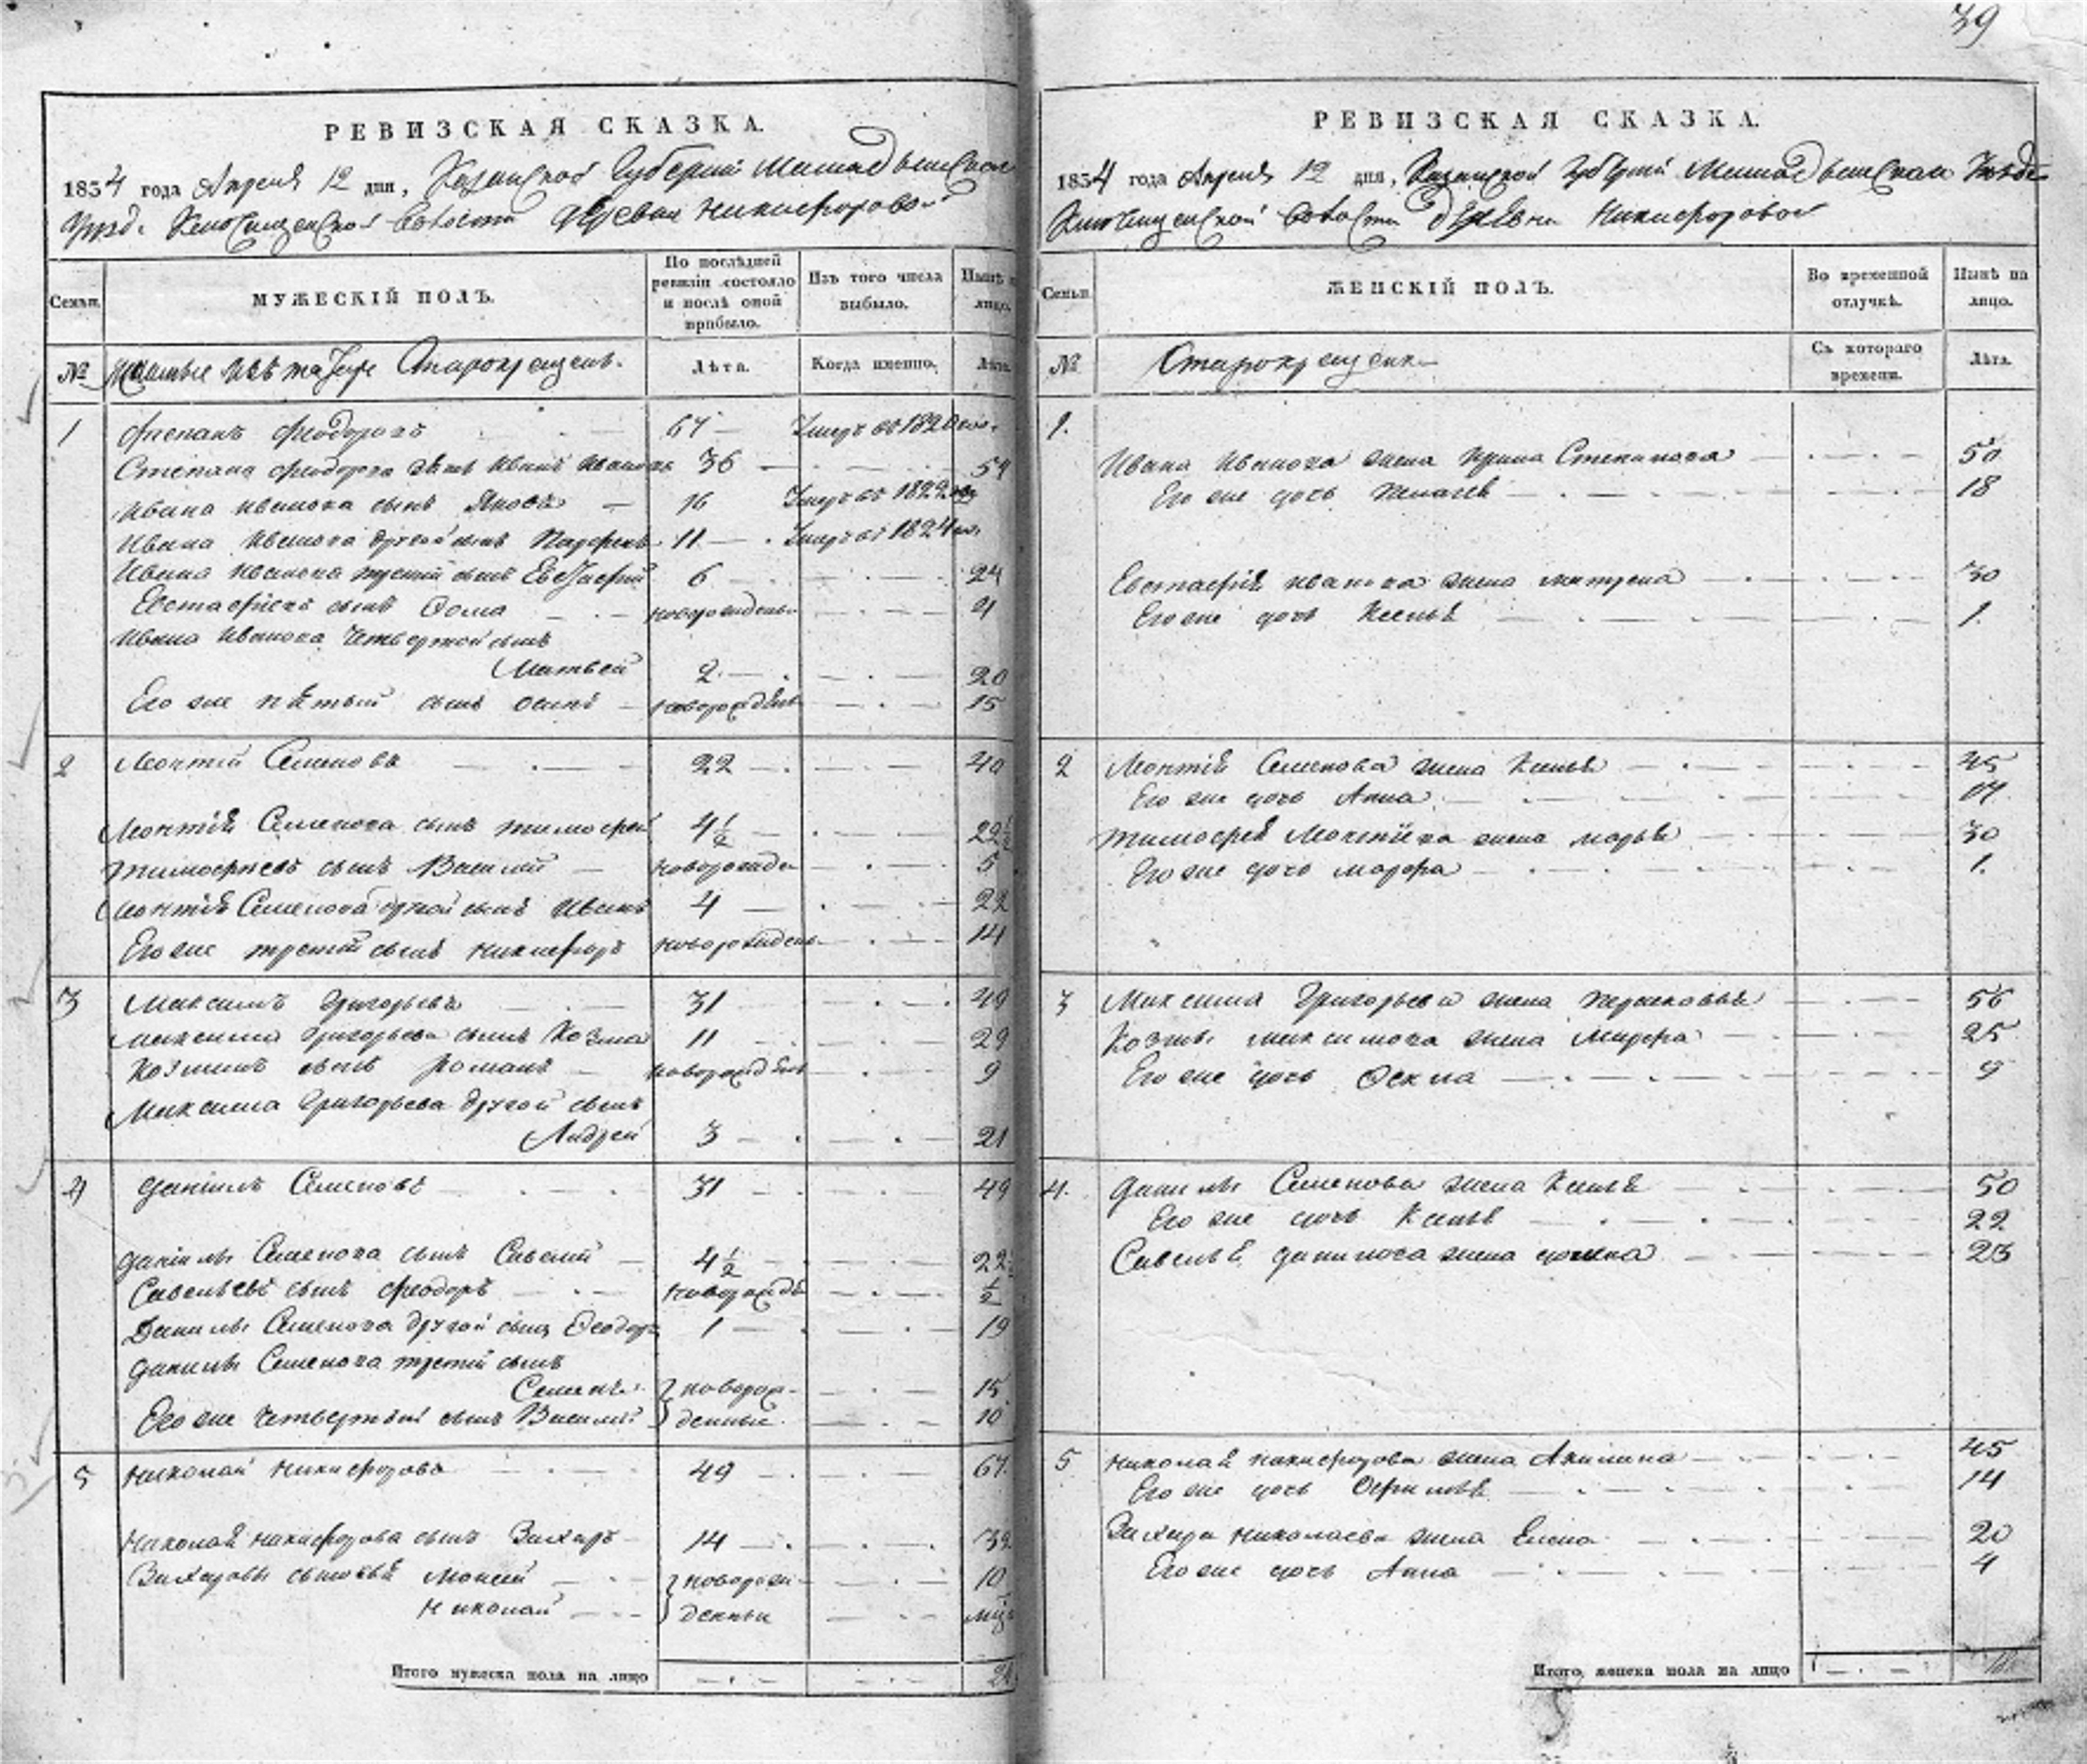 39
РЕВИЗСКАЯ СКАЗКА.
1834 года Апреля 12 дня, Казанской Губерніи
Деревни Никифоровой
Семьи.
МУЖЕСКІЙ ПОЛЪ.
По послѣдней ревизіи состояло и послѣ оной прибыло.
Изъ того числа выбыло.
Нынѣ на лицо.
№
Старокрещены.
Лѣта.
Когда именно.
Лѣта.
1 Феодоровъ 67 Умеръ въ 1820
Степана Феодорова зять Иванъ Ивановъ 36 54
Ивана Иванова сынъ Яковъ 16 Умеръ въ 1822
Ивана Иванова другой сынъ 11 Умеръ въ 1824
Ивана Иванова третій сынъ Евстафій 6 24
Евстафіевъ сынъ Ѳома новорожденъ 4
Ивана Иванова четвертой сынъ
Матвей 2 20
Его же пятый сынъ Осипъ новорожденъ 15
2 Леонтій Семеновъ 22 40
Леонтія Семенова сынъ Тимофей 4½ 22½
Тимофеевъ сынъ Василій новорожден 5
Леонтія Семенова другой сынъ Иванъ 4 22
Его же третій сынъ Никифоръ новорожден 14
3 Максимъ Григорьевъ 31 49
Максима Григорьева сынъ Козма 11 29
Козминъ сынъ Романъ новорожден 9
Максима Григорьева другой сынъ
Андрей 3 21
4 Даніилъ Семеновъ 31 49
Даніилы Семенова сынъ Савелій 4½ 22½
Савельевъ сынъ Феодоръ новорожд ½
Данилы Семенова другой сынъ Ѳеодоръ 1 19
Данилы Семенова третій сынъ
Семенъ новорож- 15
Его же четвертый сынъ Василій денные 10
5 Николай Никифоровъ 49 67
Николая Никифорова сынъ Захаръ 14 32
Захаровы сыновья Моисей новорож- 10
Николай денны
Итого мужеска пола на лицо
РЕВИЗСКАЯ СКАЗКА.
1834 года Апреля 12 дня, Казанской Губерніи
Деревни Никифоровой
Семьи.
ЖЕНСКІЙ ПОЛЪ.
Во временной отлучкѣ.
Нынѣ на лицо.
№
Старокрещены
Съ котораго времени.
Лѣта.
1. Ивана Иванова жена Ирина Степанова 50
Его же дочь 18
Евстафія Иванова жена Матрена 30
Его же дочь Ксенья 1
2 Леонтія Семенова жена Ксенья 45
Его же дочь Анна 17
Тимофея Леонтіева жена Марья 30
Его же дочь Марфа 1.
3 Максима Григорьева жена 56
Козмы Максимова жена Марфа 25
Его же дочь Ѳекла 9
4. Данилы Семенова жена Ксенья 50
Его же дочь Ксенья 22
Савелья Данилова жена 23
5 Николая Никифорова жена Акилина 45
Его же дочь 14
Захара Николаева жена Елена 20
Его же дочь Анна 4
Итого женска пола на лицо